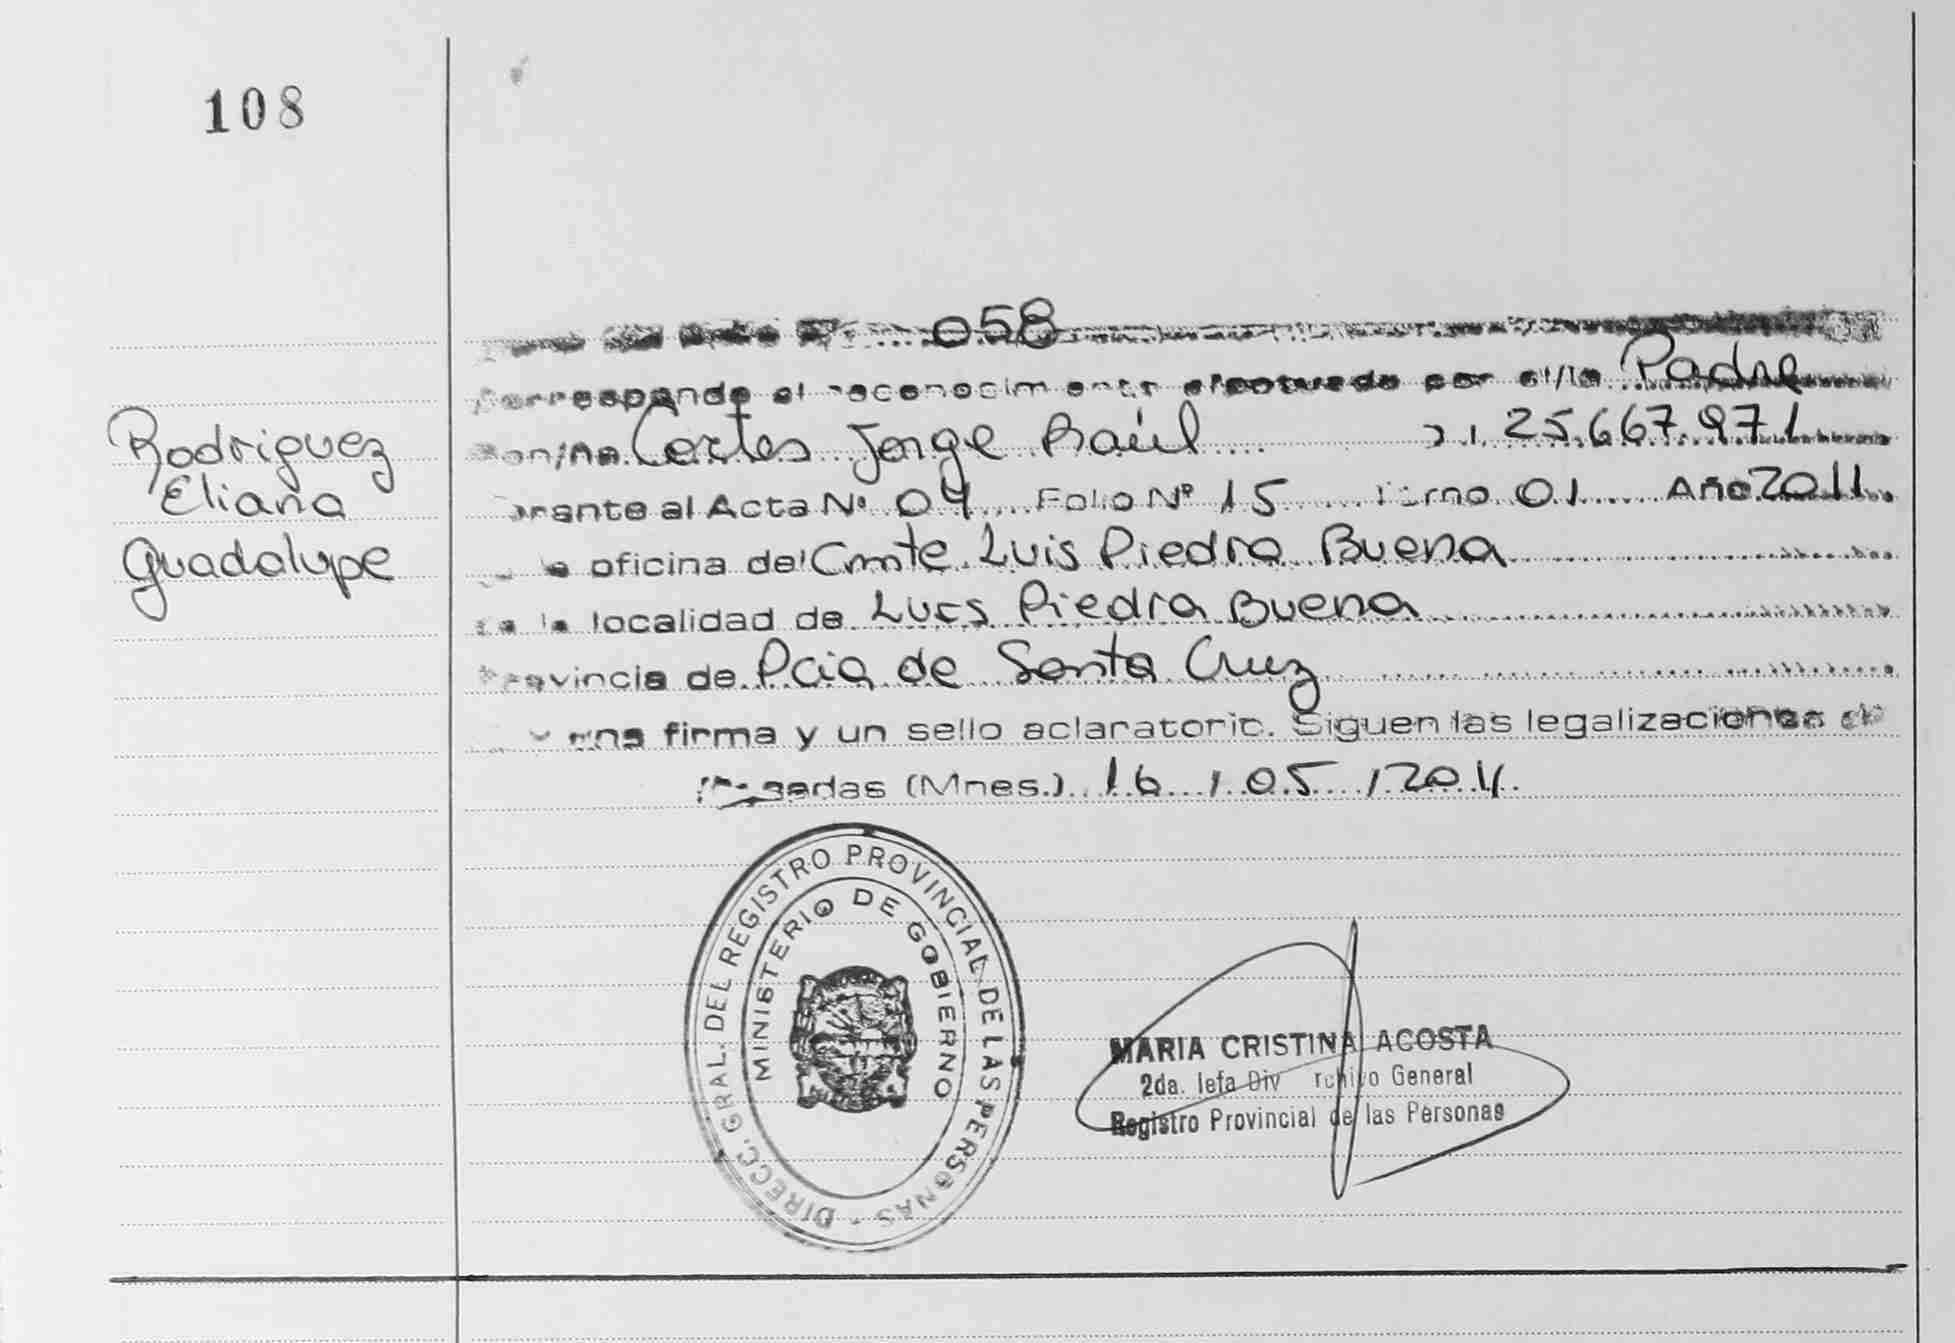 108
058
Corresponde al reconocimiento efectuado por el/la Padre
Rodriguez
Eliana
Guadalupe
Don/ña Cortes Jorge Raúl D.I. 25.667.971
obrante al Acta Nº 04 Folio Nº 15 Tomo 01 Año 2011
la oficina del Cmte. Luis Piedra Buena
de la localidad de Luis Piedra Buena
Provincia de Pcia de Santa Cruz
y una firma y un sello aclaratorio. Siguen las legalizaciones
Posadas (Mnes.) 16 / 05 / 2011.
DIRECC. GRAL. DEL REGISTRO PROVINCIAL DE LAS PERSONAS -
MINISTERIO DE GOBIERNO
MARIA CRISTINA ACOSTA
2da. Jefa Div Archivo General
Registro Provincial de las Personas